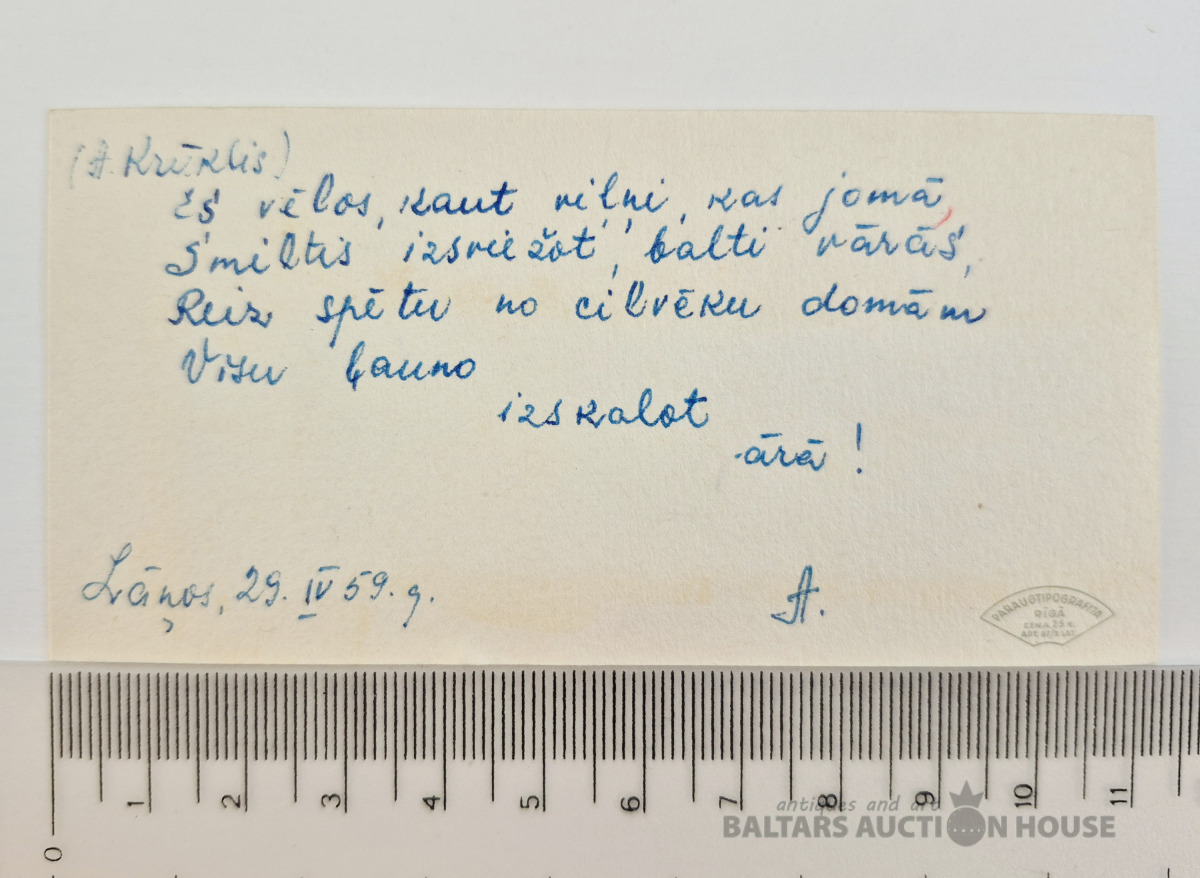 (A. Krūklis)
Es vēlos, kaut viļņi, kas jomā,
Smiltis izsviežot, balti vārās,
Reiz spētu no cilvēku domām
Visu ļauno
izskalot
ārā!
Lāņos, 29. IV 59. g.
A.
PARAUGTIPOGRAFIJA
RĪGĀ
CENA 25 K.
0 1 2 3 4 5 6 7 8 9 10 11
antiques and art
BALTARS AUCTION HOUSE